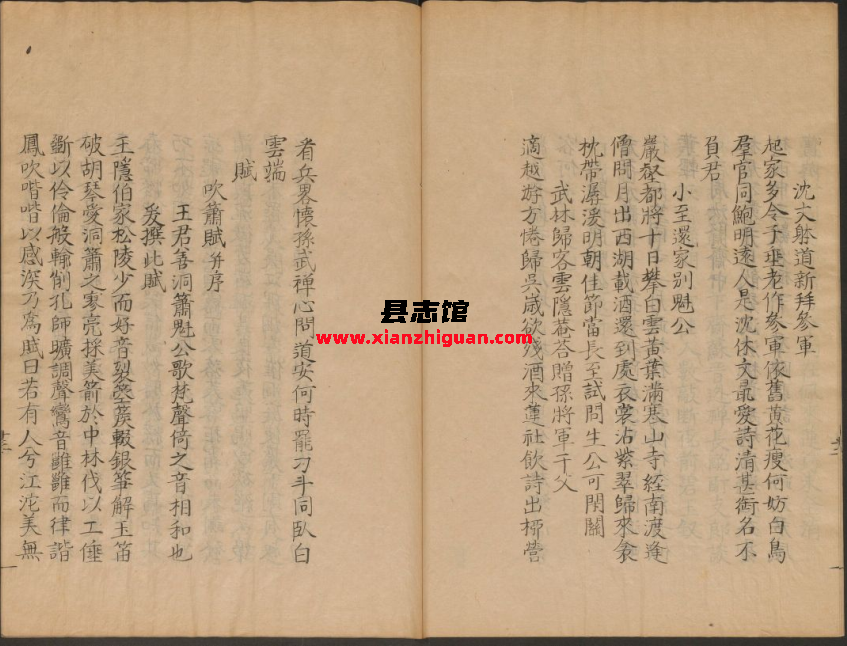 沈文躲道新拜參軍
起家多令子垂老作參軍依舊黄花瘦何妨白鳥
羣官同鮑明遠人是沈休文最愛詩清甚銜名不
負君
小至還家別魁公
嚴壑都將十日攀白雲黄葉滿寒山寺經南渡逢
僧問月出西湖載酒還到處衣裳沾紫翠歸來衾
枕帶潺湲明朝佳節當長至試問生公可閉關
武林歸客雲隱菴荅贈孫將軍干父
適越游方倦歸吳歲欲殘酒來蓮社飲詩出柳營
看兵畧懷孫武禪心問道安何時罷刁斗同臥白
雲端
賦
吹簫賦并序
王君善洞簫魁公歌梵聲倚之音相和也
爰撰此賦
王隱伯家松陵少而好音裂箜篌輟銀箏解玉笛
破胡琴愛洞簫之寥亮採美箭於中林伐以工倕
斵以伶倫般輸削孔師曠調聲鸞音雝雝而律諧
鳳吹喈喈以感深乃為賦曰若有人兮江沱美無
县志馆
www.xianzhiguan.com